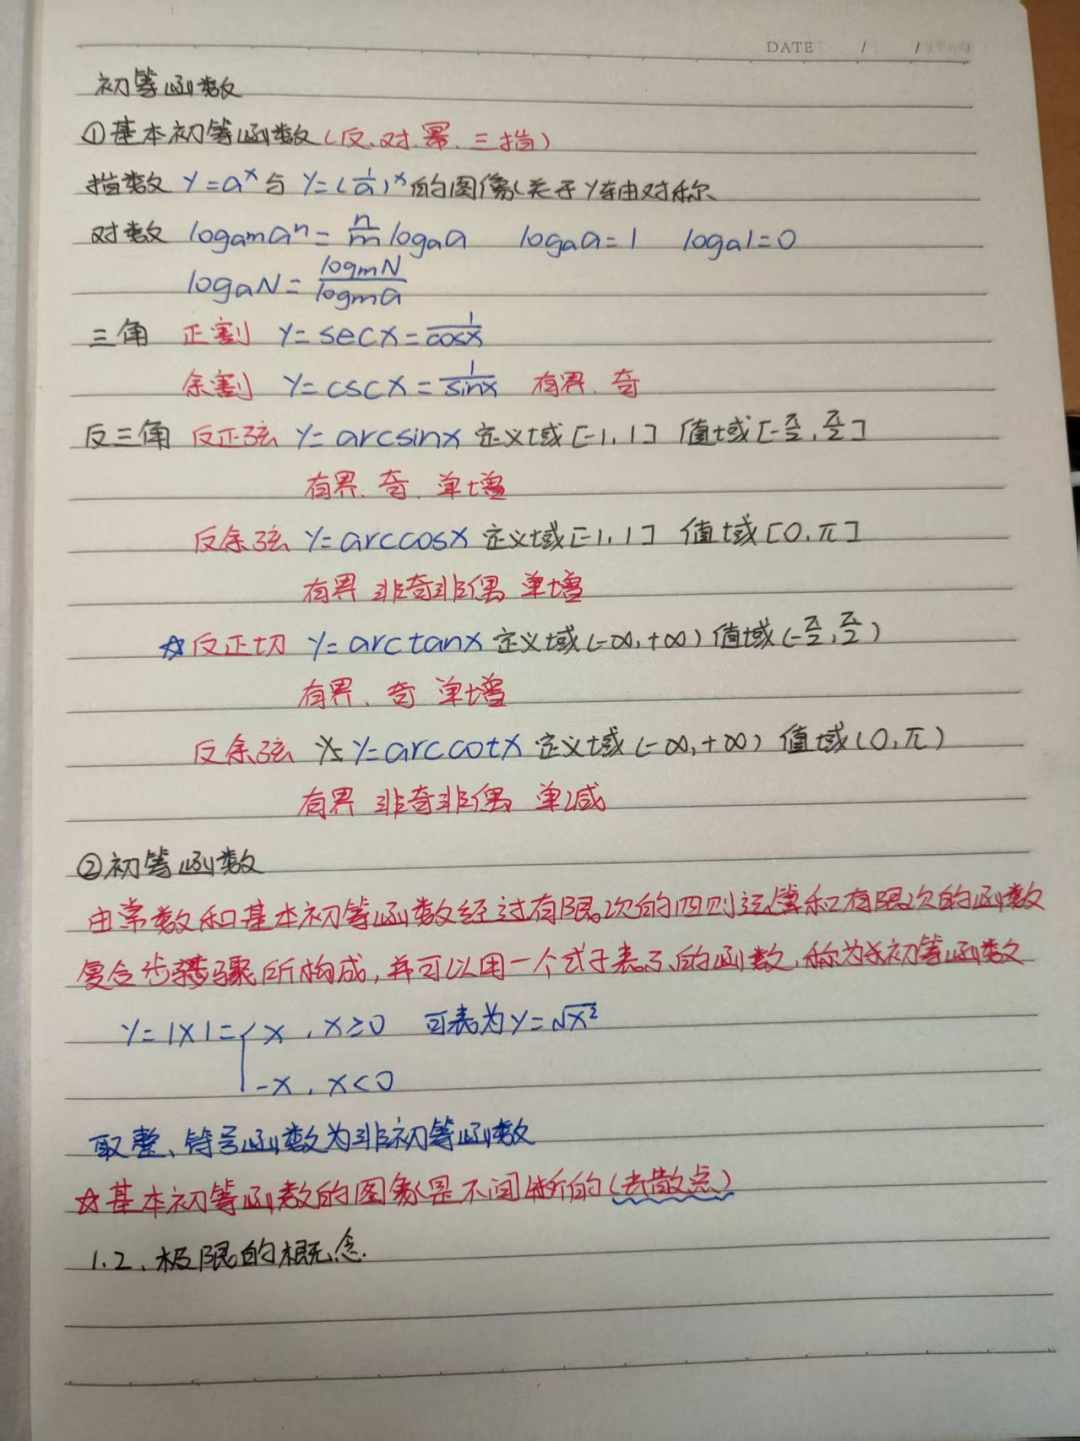 DATE / /
初等函数
①基本初等函数(反、对、幂、三指)
指数 y=aˣ与 y=(1/a)ˣ的图像关于y轴对称
对数 logₐᵐaⁿ=n/m logₐa logₐa=1 logₐ1=0
logₐN=logₘN/logₘa
三角 正割 y=secx=1/cosx
余割 y=cscx=1/sinx 有界、奇
反三角 反正弦 y=arcsinx 定义域[-1,1] 值域[-π/2,π/2]
有界、奇、单增
反余弦 y=arccosx 定义域[-1,1] 值域[0,π]
有界 非奇非偶 单增
☆反正切 y=arctanx 定义域(-∞,+∞) 值域(-π/2,π/2)
有界、奇 单增
反余弦 y=arccotx 定义域(-∞,+∞) 值域(0,π)
有界 非奇非偶 单减
②初等函数
由常数和基本初等函数经过有限次的四则运算和有限次的函数
复合步骤所构成,并可以用一个式子表示的函数,称为初等函数
y=|x|={x,x≥0 可表为y=√x²
-x,x<0
取整、符号函数为非初等函数
☆基本初等函数的图象是不间断的(去散点)
1.2、极限的概念.